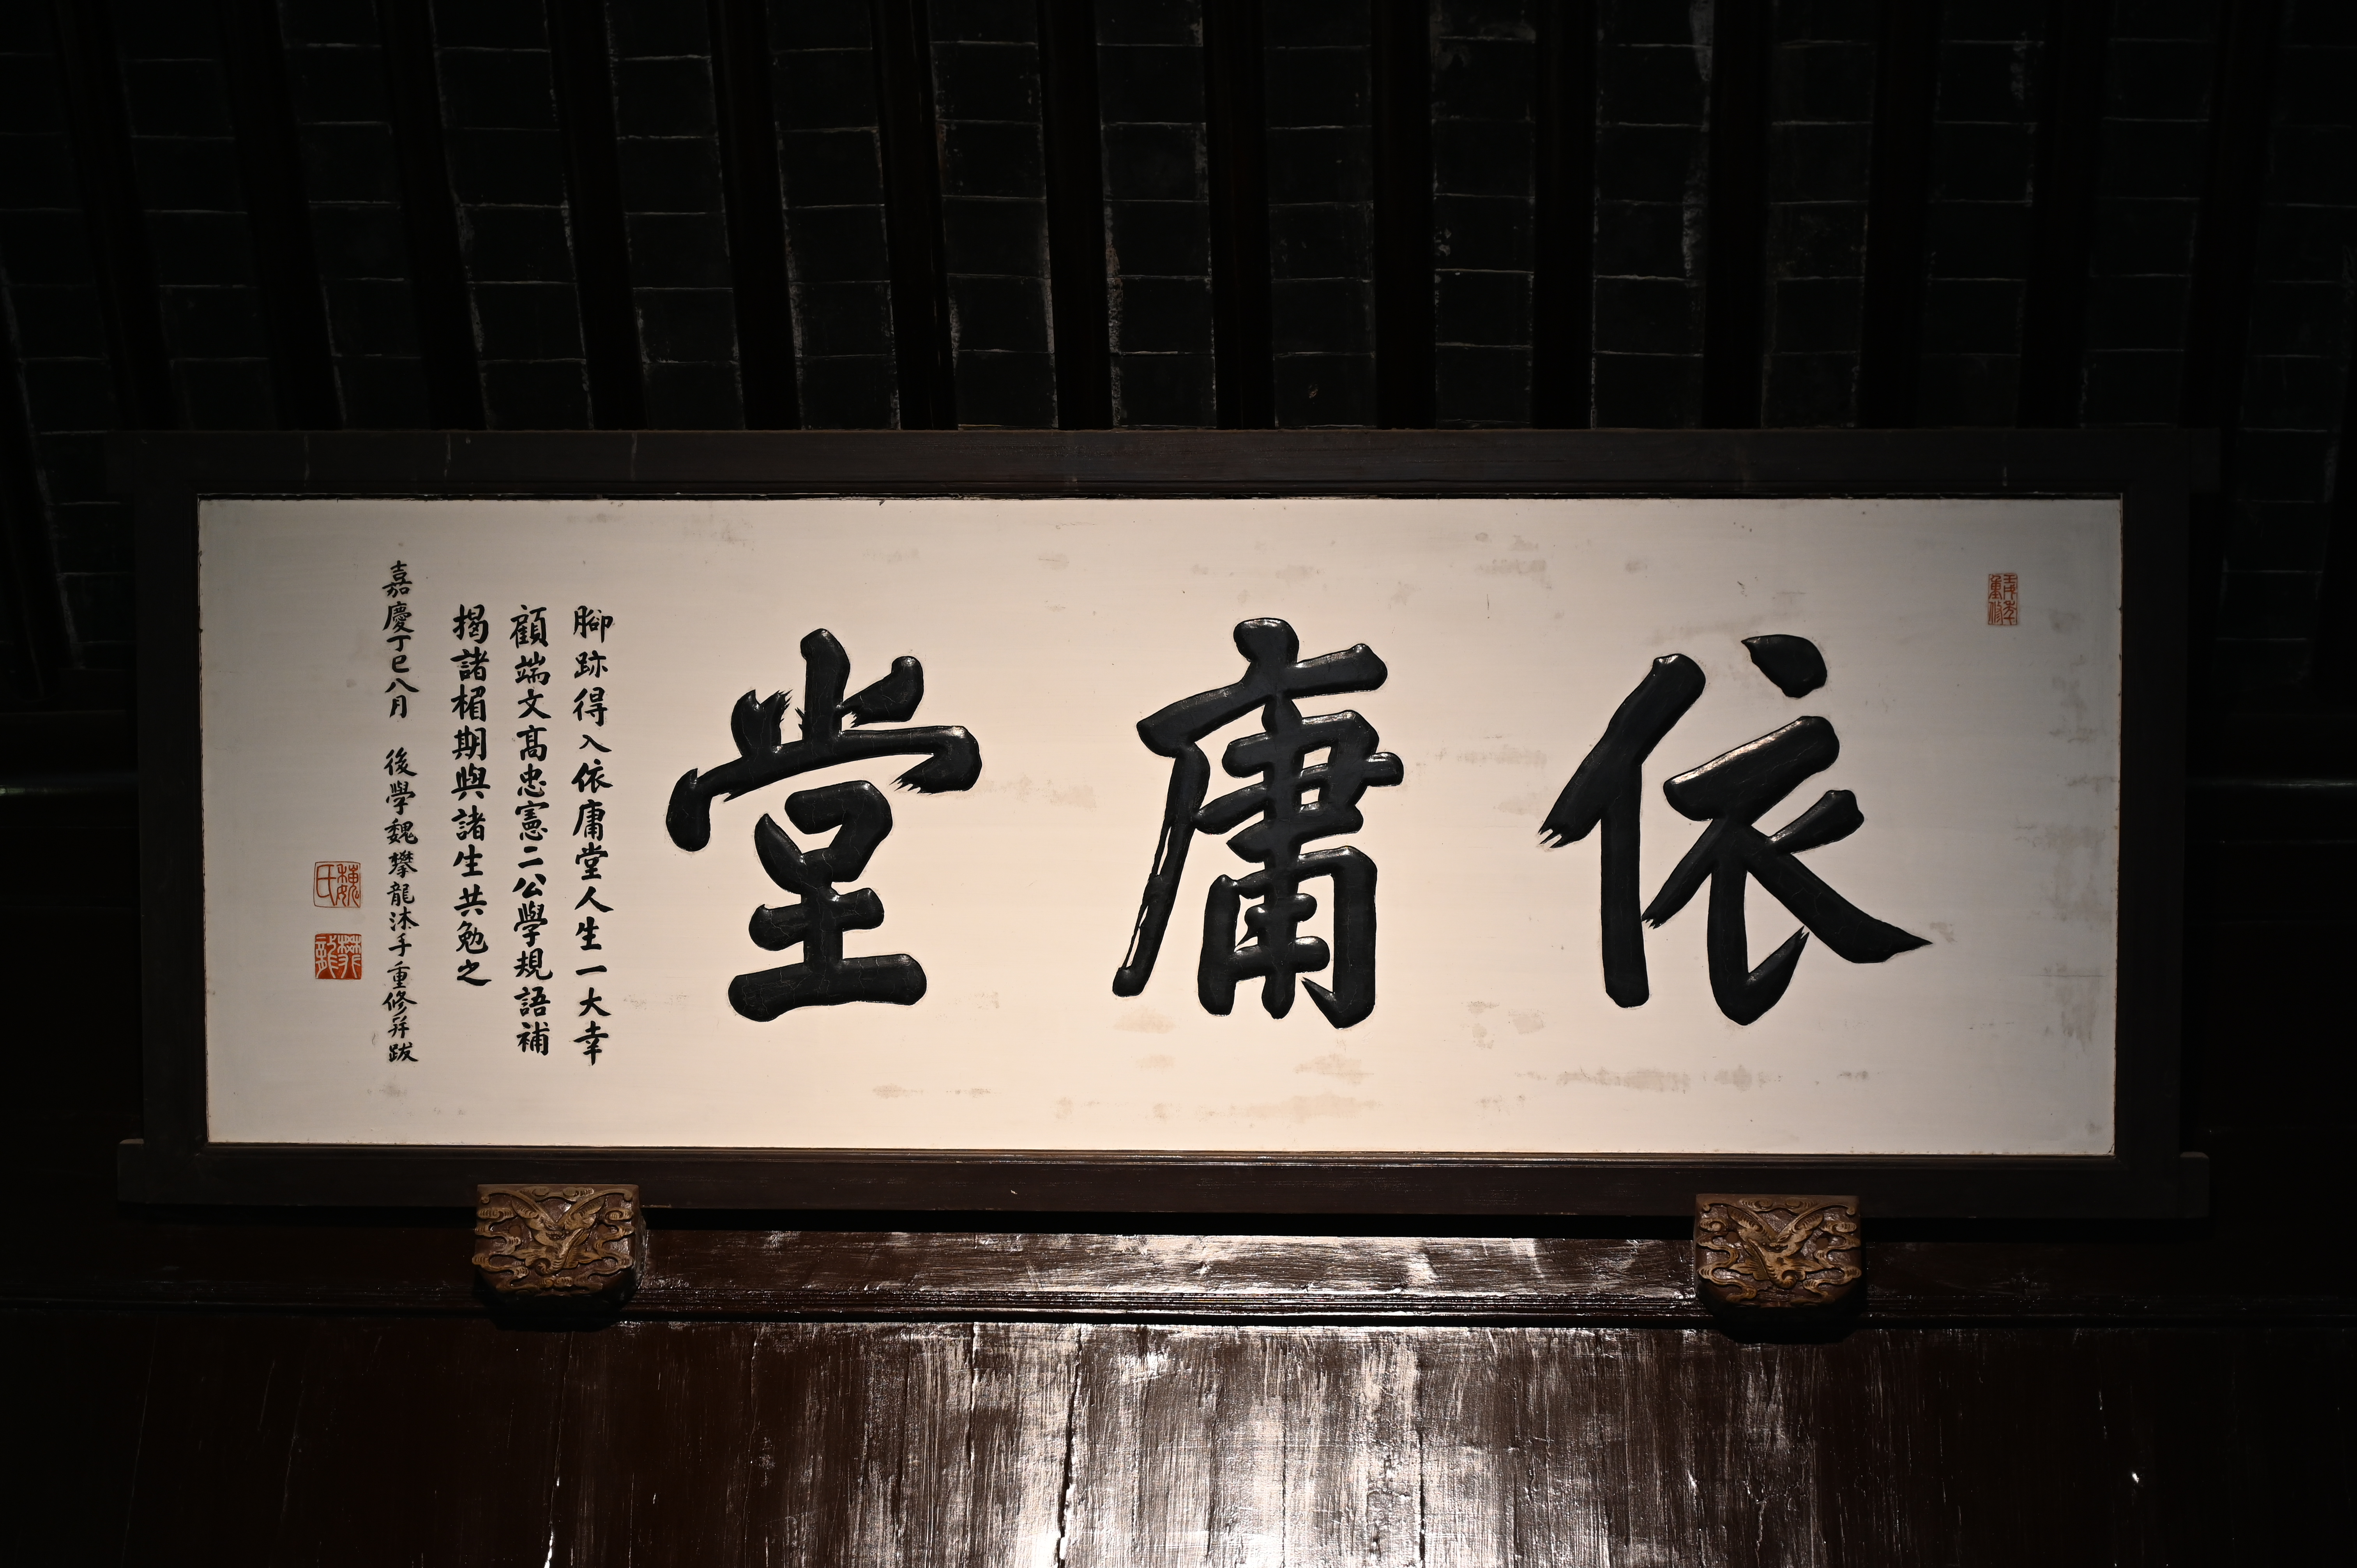 壬戌年重修
依庸堂
腳跡得入依庸堂人生一大幸
顧端文高忠憲二公學規語補
揭諸楣期與諸生共勉之
嘉慶丁巳八月 後學魏攀龍沐手重修并跋
魏氏
攀龍